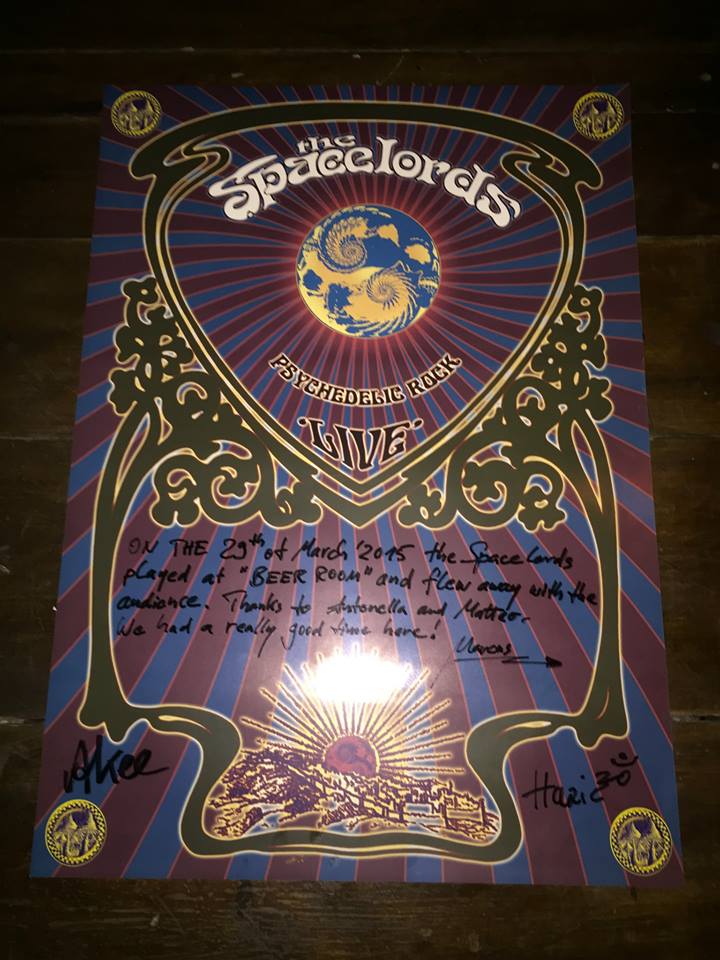 the
Spacelords
PSYCHEDELIC ROCK
·LIVE·
ON THE 29th of March '2015 the Space Lords
played at "BEER ROOM" and flew away with the
audience. Thanks to Antonella and Matteo.
We had a really good time here!
Marcus
Akee
Hazic